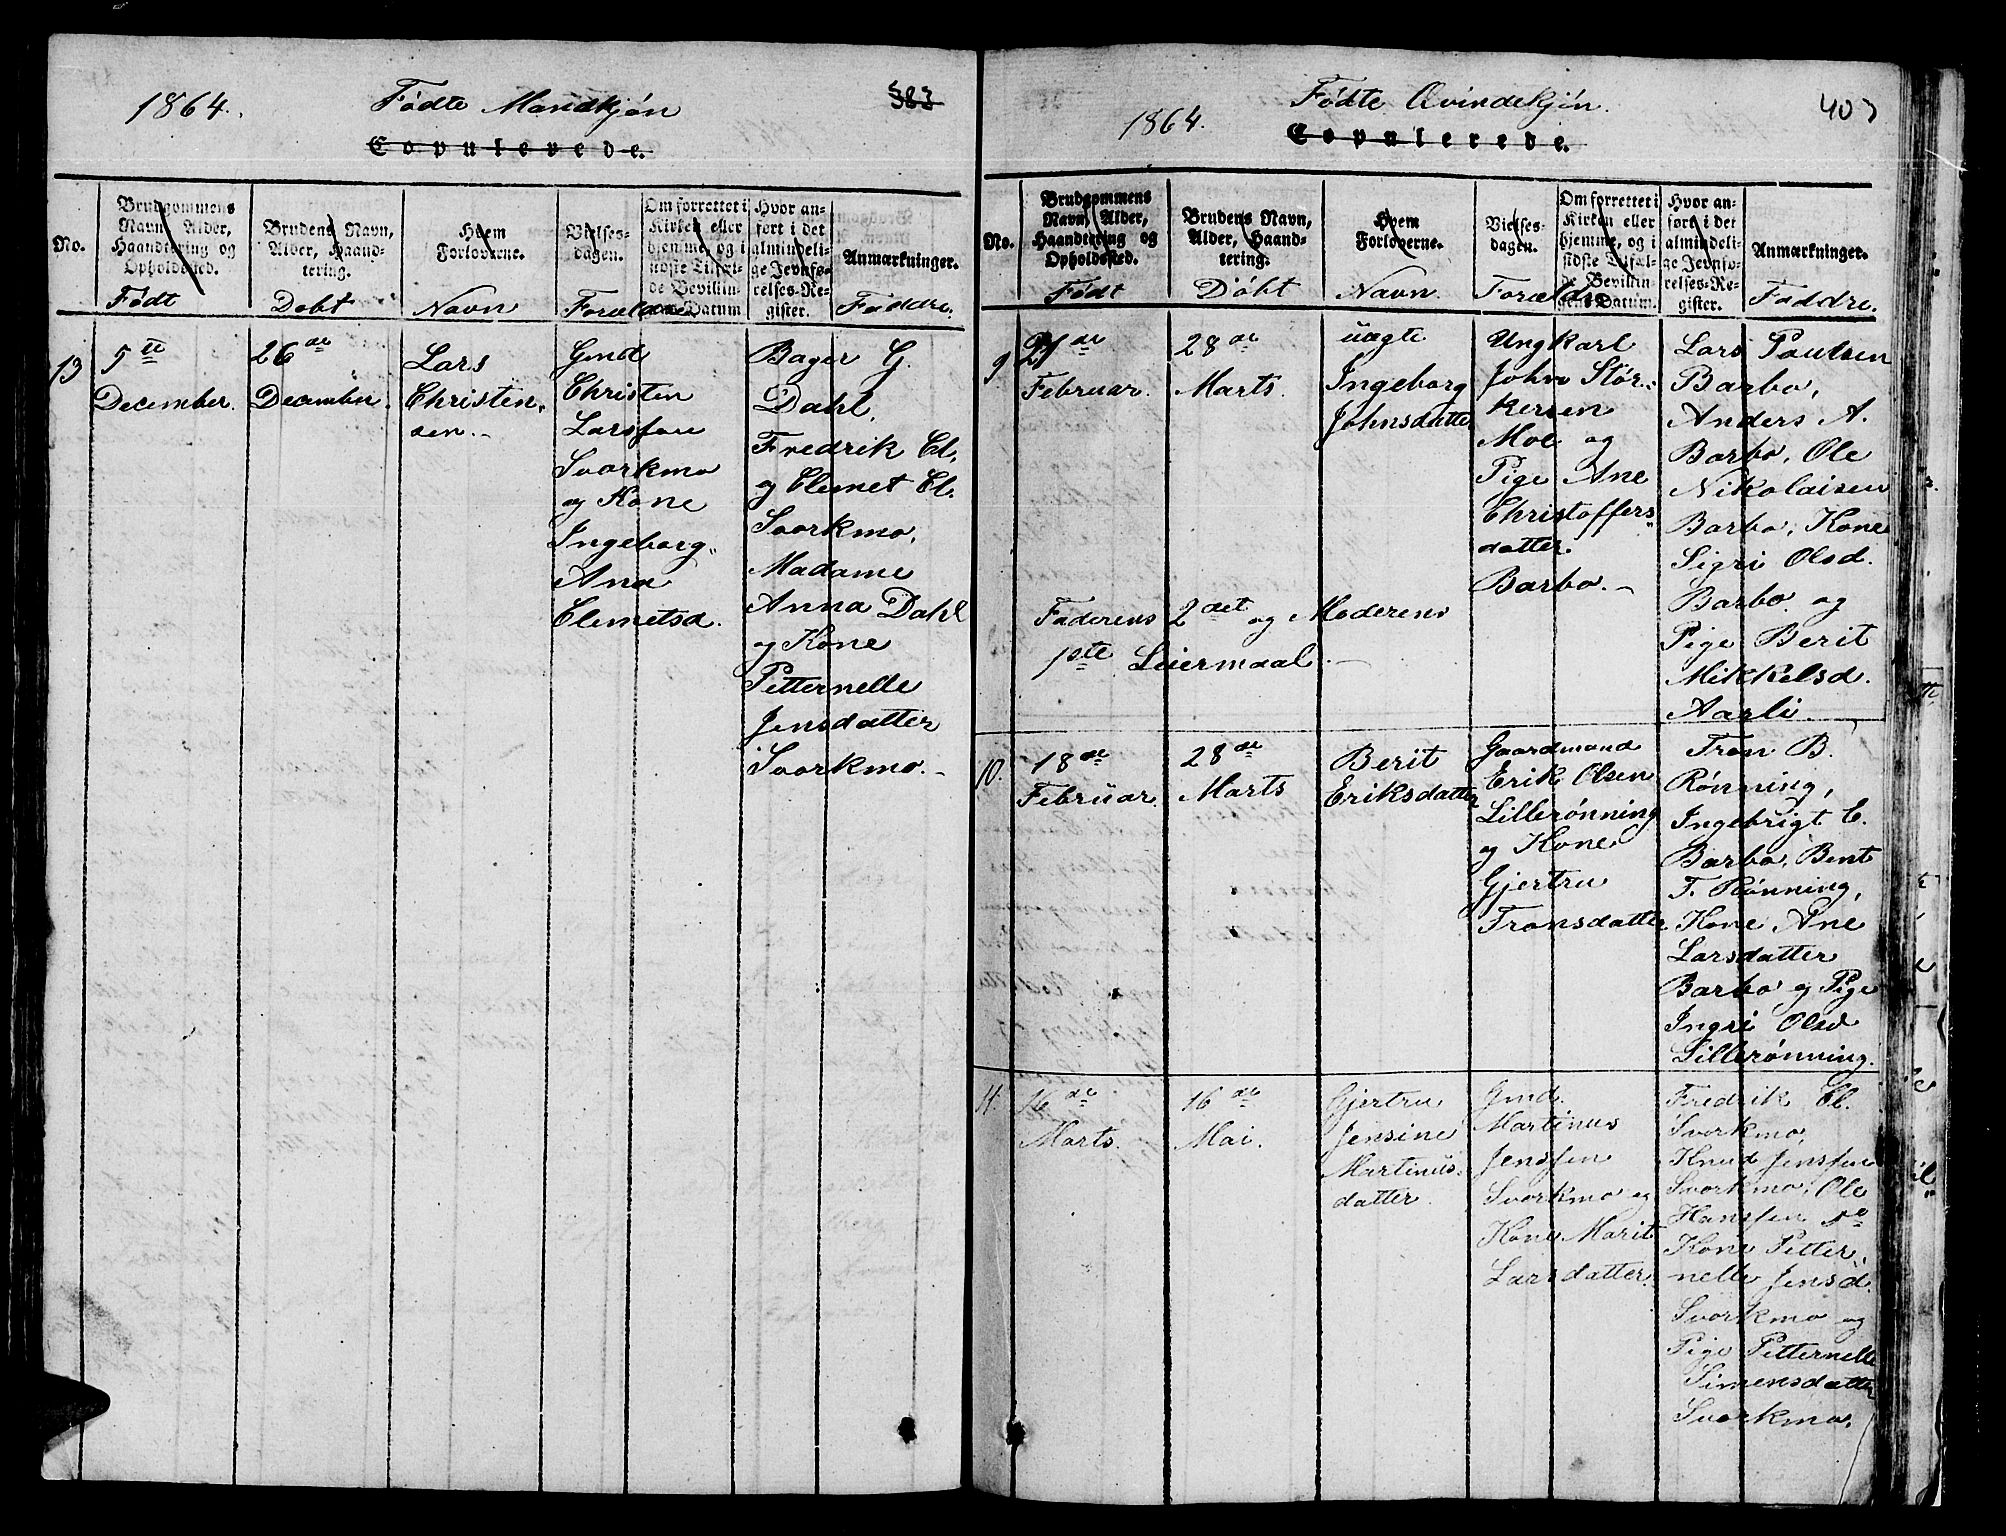 1864.
Fødte Mandkjøn
383
Copulerede.
No.
Brudgommens
Navn, Alder,
Haandtering og
Opholdssted.
Brudens Navn,
Alder, Haand-
tering.
Hvem
Forloverne.
Vielses-
dagen.
Om forrettet i
Kirken eller
hjemme, og i
sidste Tilfæl-
de Bevillin-
gens Datum
Hvor an-
ført i det
almindeli-
ge Jevnfø-
relses-Re-
gister.
Anmærkninger.
Født
Døbt
Navn
Forældre
Faddre.
13
5te
December.
26de
December.
Lars
Christen-
sen.
Gmd
Christen
Larssen
Svorkmo
og Kone
Ingeborg
Ana
Clemetsd.
Bager G.
Dahl,
Fredrik Cl.
og Clemet Cl.
Svorkmo,
Madame
Anna Dahl
og Kone
Petternelle
Jensdatter
Svorkmo.
1864.
Fødte Qvindekjøn.
403
Copulerede.
No.
Brudgommens
Navn, Alder,
Haandtering og
Opholdssted.
Brudens Navn,
Alder, Haand-
tering.
Hvem
Forloverne.
Vielses-
dagen.
Om forrettet i
Kirken eller
hjemme, og i
sidste Tilfæl-
de Bevillin-
gens Datum.
Hvor an-
ført i det
almindeli-
ge Jevnfø-
relses-Re-
gister.
Anmærkninger.
Født
Døbt
Navn.
Forældre
Faddre.
9
21de
Februar.
28de
Marts.
uægte
Ingeborg
Johnsdatter
Ungkarl
John Stør-
kersen
Moe og
Pige Ane
Christoffers
datter
Barbo.
Lars Paulsen
Barbo,
Anders A.
Barbo, Ole
Nikolaisen
Barbo, Kone
Sigri Olsd.
Barbo og
Pige Berit
Mikkelsd.
Aarli.
Faderens 2det og Moderens
1ste Leiermaal.
10.
18de
Februar.
28de
Marts
Berit
Eriksdatter
Gaardmand
Erik Olsen
Lillerønning
og Kone
Gjertru
Tronsdatter
Tron B.
Rønning,
Ingebrigt C.
Barbo, Bent
T. Rønning,
Kone Ane
Larsdatter
Barbo og Pige
Ingri Olsd
Lillerønning.
11.
16de
Marts.
16de
Mai.
Gjertru
Jensine
Martinus-
datter.
Gmd.
Martinus
Jenssen
Svorkmo og
Kone Marit
Larsdatter.
Fredrik Cl.
Svorkmo,
Knud Jenssen
Svorkmo, Ole
Hanssen
Kone Petter-
nelle Jensd.
Svorkmo og
Pige Petternelle
Simensdatter
Svorkmo.